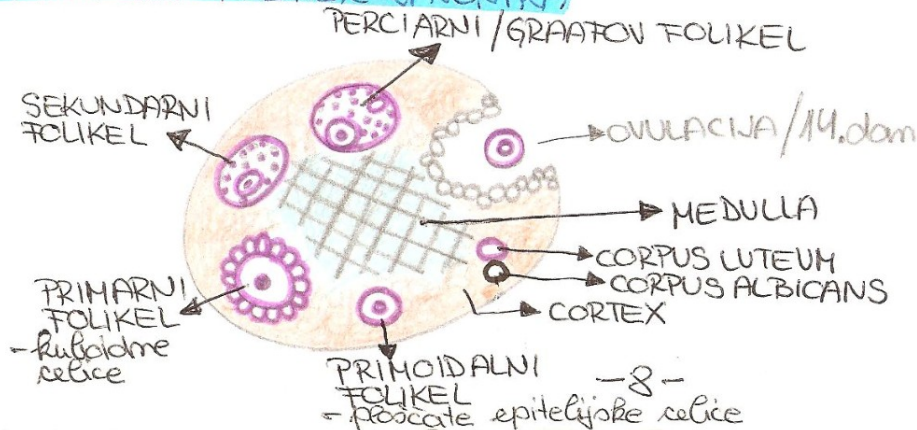 PERCIARNI/GRAAFOV FOLIKEL
SEKUNDARNI
FOLIKEL
OVULACIJA/14.dan
MEDULLA
CORPUS LUTEUM
CORPUS ALBICANS
CORTEX
PRIMARNI
FOLIKEL
-kuboidne
celice
PRIMOIDALNI
FOLIKEL
- ploščate epitelijske celice
-8-